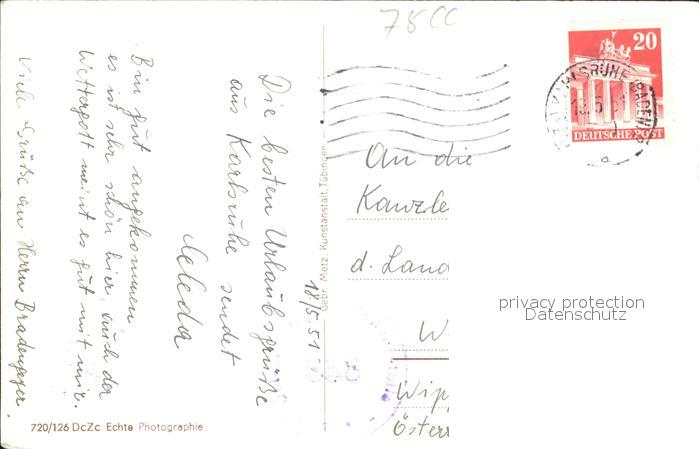 78CC
20
KARLSRUHE (BADEN)
DEUTSCHE POST
Die besten Urlaubsgrüße
aus Karlsruhe sendet
18/5.51
Bin gut angekommen
es ist sehr schön hier, auch der
Wettergott meint es gut mit mir.
Viele Grüße an Herrn
An die
Kanzle
d. Land
W
Wipp
Österr
Gebr. Metz, Kunstanstalt, Tübingen
720/126 DcZc Echte Photographie
privacy protection
Datenschutz